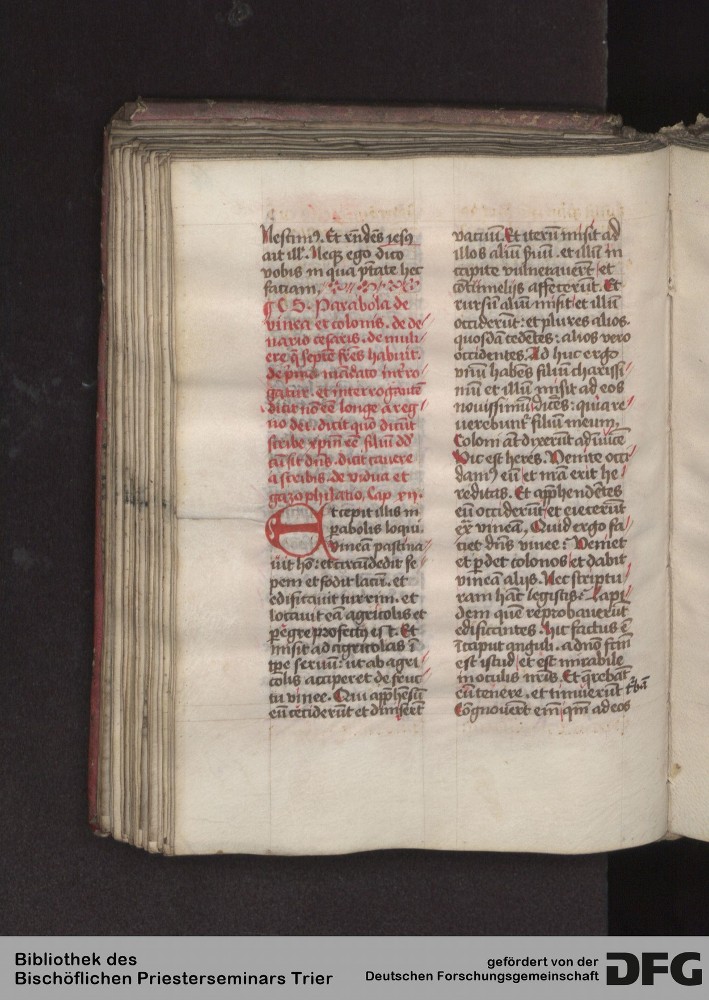 Nescim9. Et rn̄dēs iesꝯ
ait ill̕. Neqꝫ ego dico
vobis in qua ptāte hec
faciam.
Parabola de
vinea et colonis. de de
nario cesaris. de muli
ere q̄ septē frēs habuit.
de pmo mādato int̕ro
gatur. et interrogantē
dicit nō eē longe a reg
no dei. dicit quō dicūt
scribe xpm̄ eē filiū dd̄
cū sit dn̄s. dicit cauere
a scribis. de vidua et
gazophilatio. Cap xij.
Et cepit illis in
pabolis loqui.
vineā pastina
uit hō: et circūdedit se
pem et fodit lacū. et
edificauit turrim. et
locauit eā agricolis et
pegre profectꝯ est. Et
misit ad agricolas ī
tpe seruū: ut ab agri
colis acciperet de fruc
tu vinee. Qui apphēsū
eū ceciderūt et dimiserūt
vacuū. Et iterū misit ad
illos aliū ẜuū. et illū in
capite vulnerauerūt et
cōtumelijs affecerūt. Et
rursū aliū misit et illū
occiderūt: et plures alios.
quosdā cedētes: alios vero
occidentes. Ad huc ergo
vnū habēs filiū charissi
mū et illū misit ad eos
nouissimū dicēs: quia re
uerebunt̕ filiū meum.
Coloni aūt dixerūt adinuicē
Hic est heres. Venite occi
damꝯ eū et nr̄a erit he
reditas. Et apphendētes
eū occiderūt et eiecerūt
ex̄ vineā. Quid ergo fa
ciet dn̄s vinee? Veniet
et pdet colonos et dabit
vineā alijs. Nec scriptu
ram hāc legistis? Lapi
dem quē reprobauerūt
edificantes. hic factus ē
ī caput anguli. a dn̄o fcm̄
est istud et est mirabile
in oculis nr̄is. Et q̄rebāt
eū tenere. et timuerūt t̕bā
Cōgnouerūt em̄ qm̄ ad eos
Bibliothek des
Bischöflichen Priesterseminars Trier
gefördert von der
Deutschen Forschungsgemeinschaft
DFG